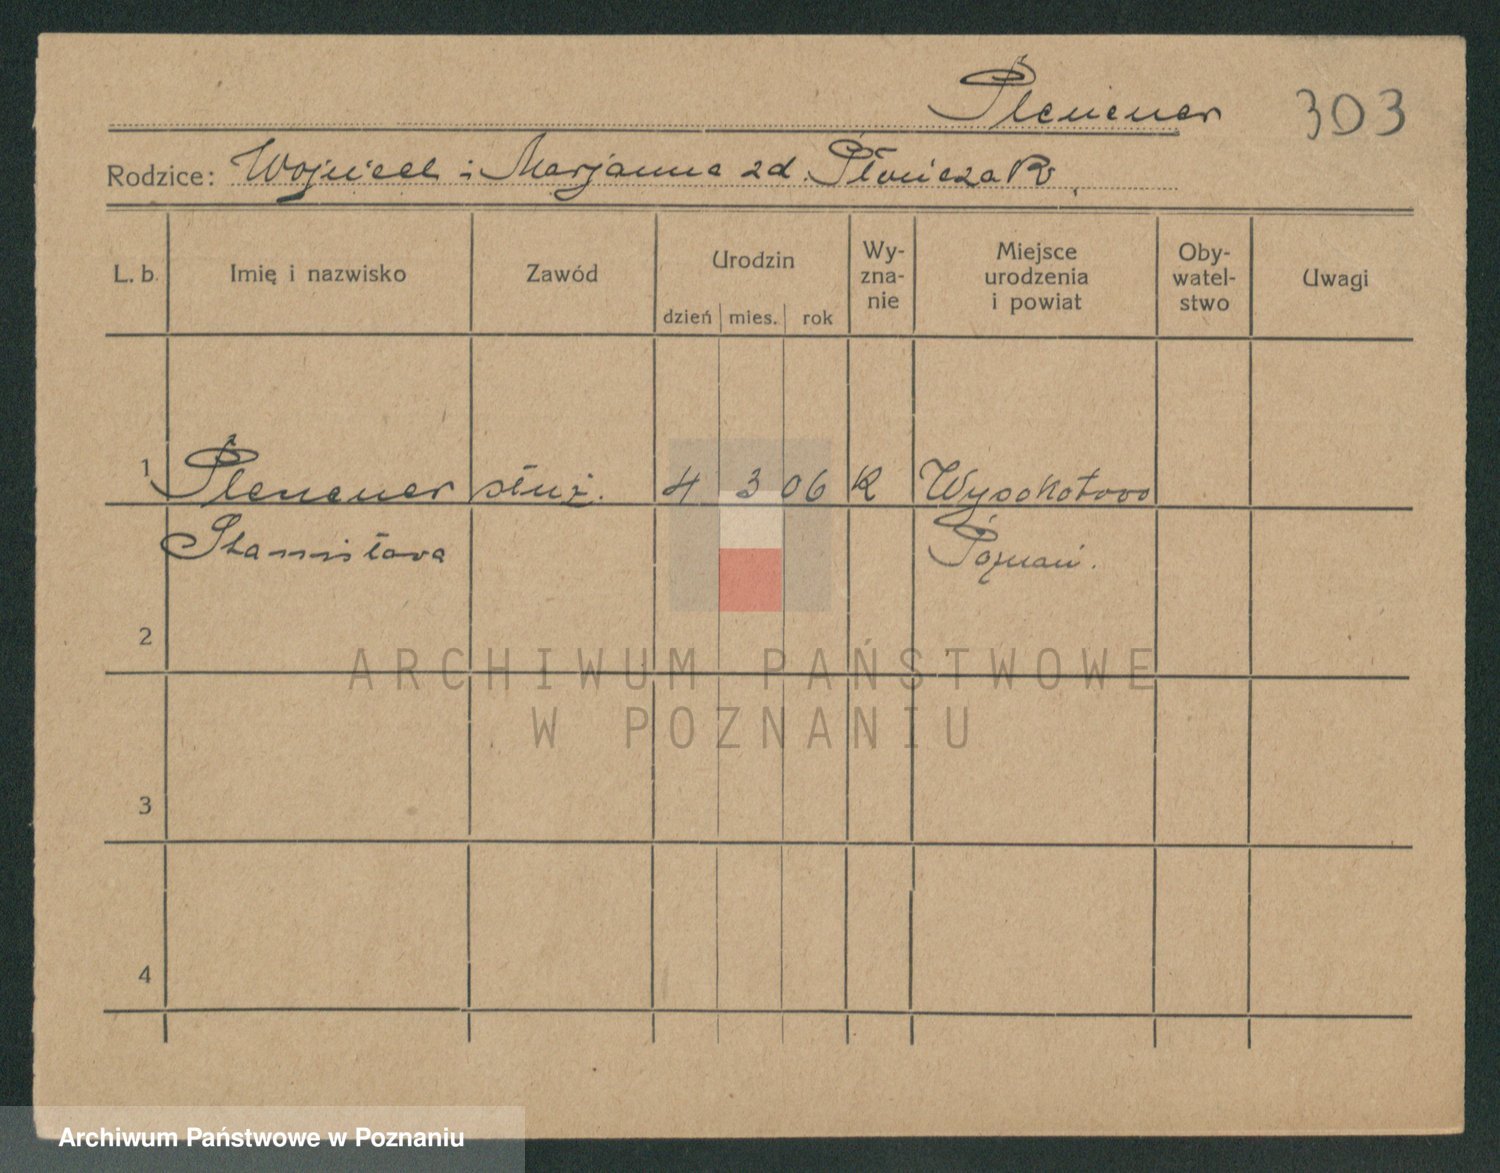 Plenener
303
Rodzice: Wojciech i Marjanna zd. Płończak
L. b.
Imię i nazwisko
Zawód
Urodzin
dzień mies. rok
Wy-
zna-
nie
Miejsce
urodzenia
i powiat
Oby-
watel-
stwo
Uwagi
1 Plenener służ. 4 3 06 K Wysokotowo
Stanisława Poznań.
2
3
4
ARCHIWUM PAŃSTWOWE
W POZNANIU
Archiwum Państwowe w Poznaniu